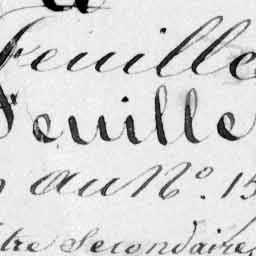 Feuille
Feuille
au No. 15
tre Secondaire